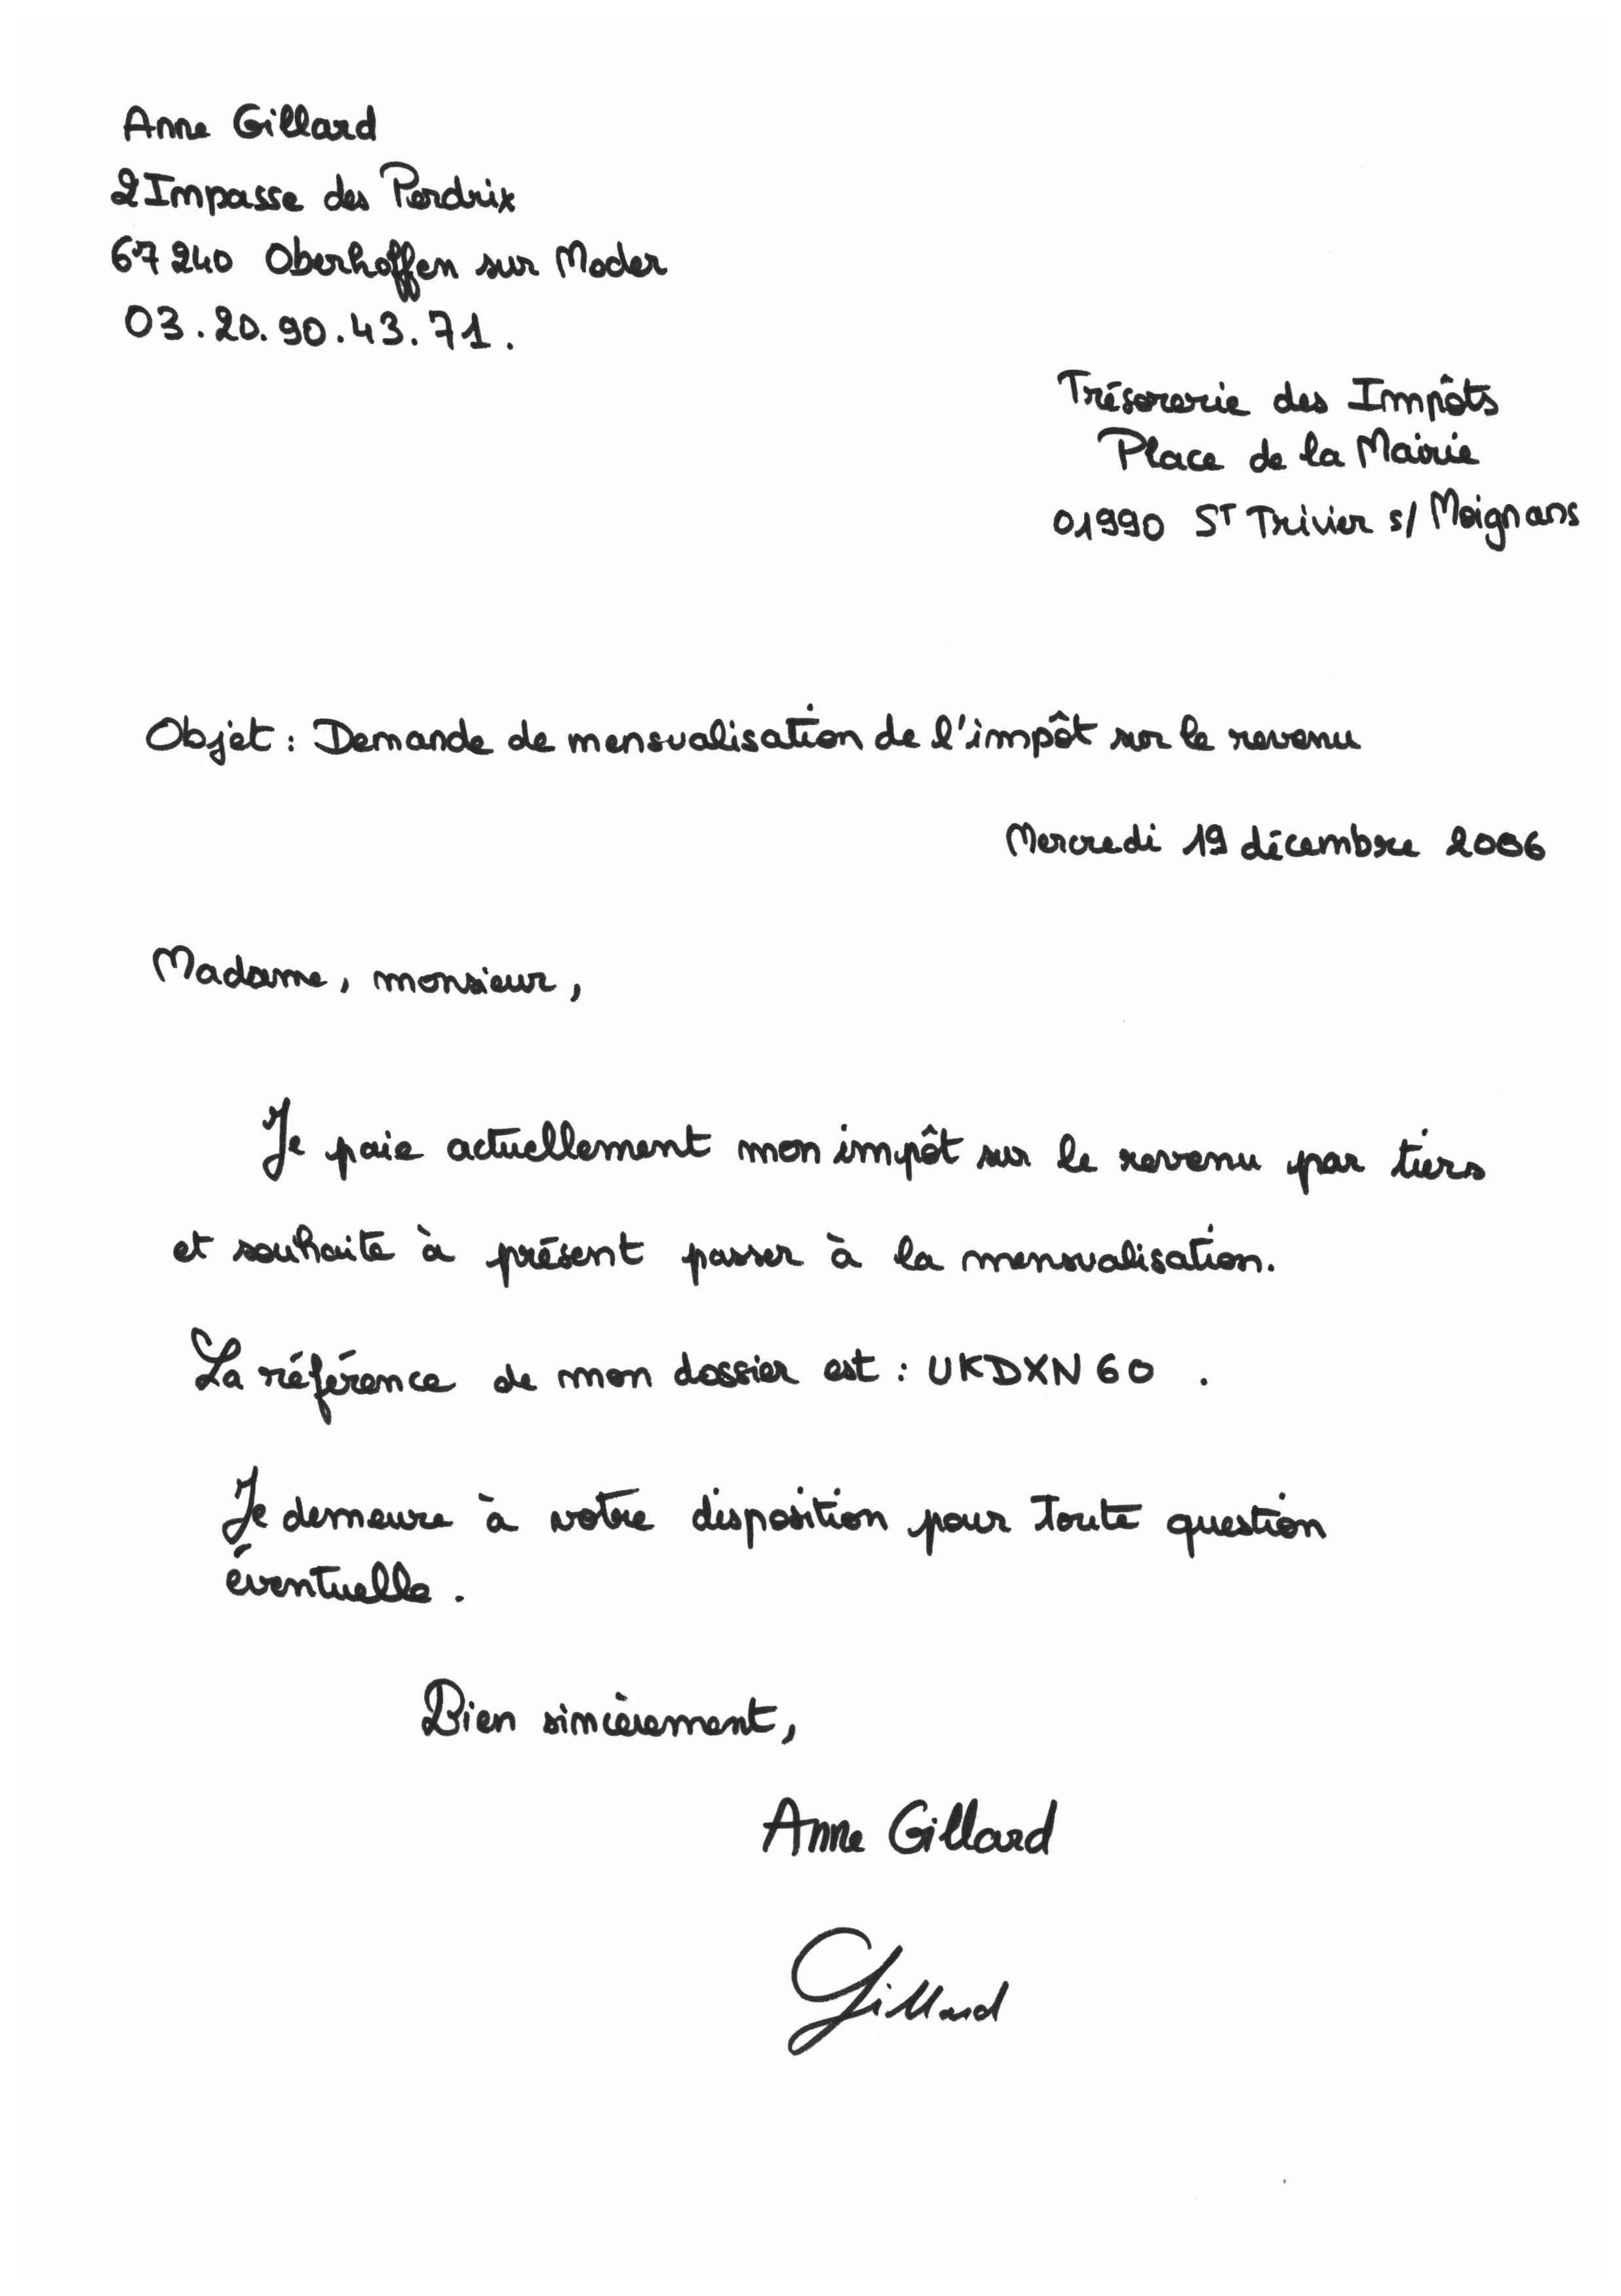 Anne Gillard
2 Impasse des Perdrix
67240 Oberhoffen sur Moder
03.20.90.43.71.
Trésorerie des Impôts
Place de la Mairie
01990 ST Trivier s/ Moignans
Objet : Demande de mensualisation de l'impôt sur le revenu
Mercredi 19 décembre 2006
Madame, monsieur,
Je paie actuellement mon impôt sur le revenu par tiers
et souhaite à présent passer à la mensualisation.
La référence de mon dossier est : UKDXN60 .
Je demeure à votre disposition pour toute question
éventuelle.
Bien sincèrement,
Anne Gillard
Gillard